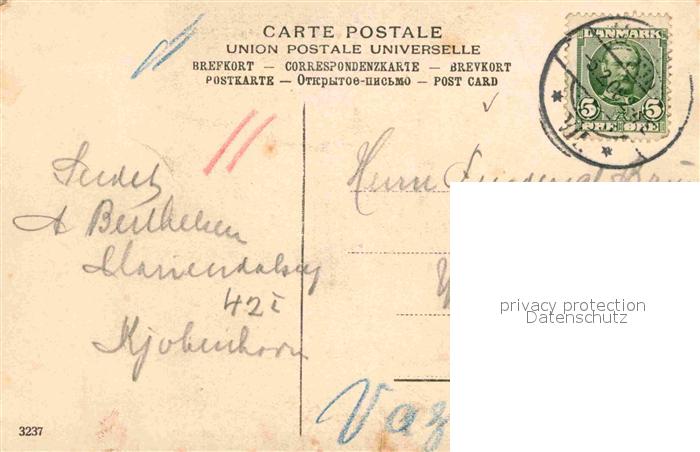 CARTE POSTALE
UNION POSTALE UNIVERSELLE
BREFKORT — CORRESPONDENZKARTE — BREVKORT
POSTKARTE — Открытое-письмо — POST CARD
DANMARK
5 5
ØRE ØRE
Herrn
A Berthelsen
42 I
Kjobenhavn
privacy protection
Datenschutz
Vaz
3237